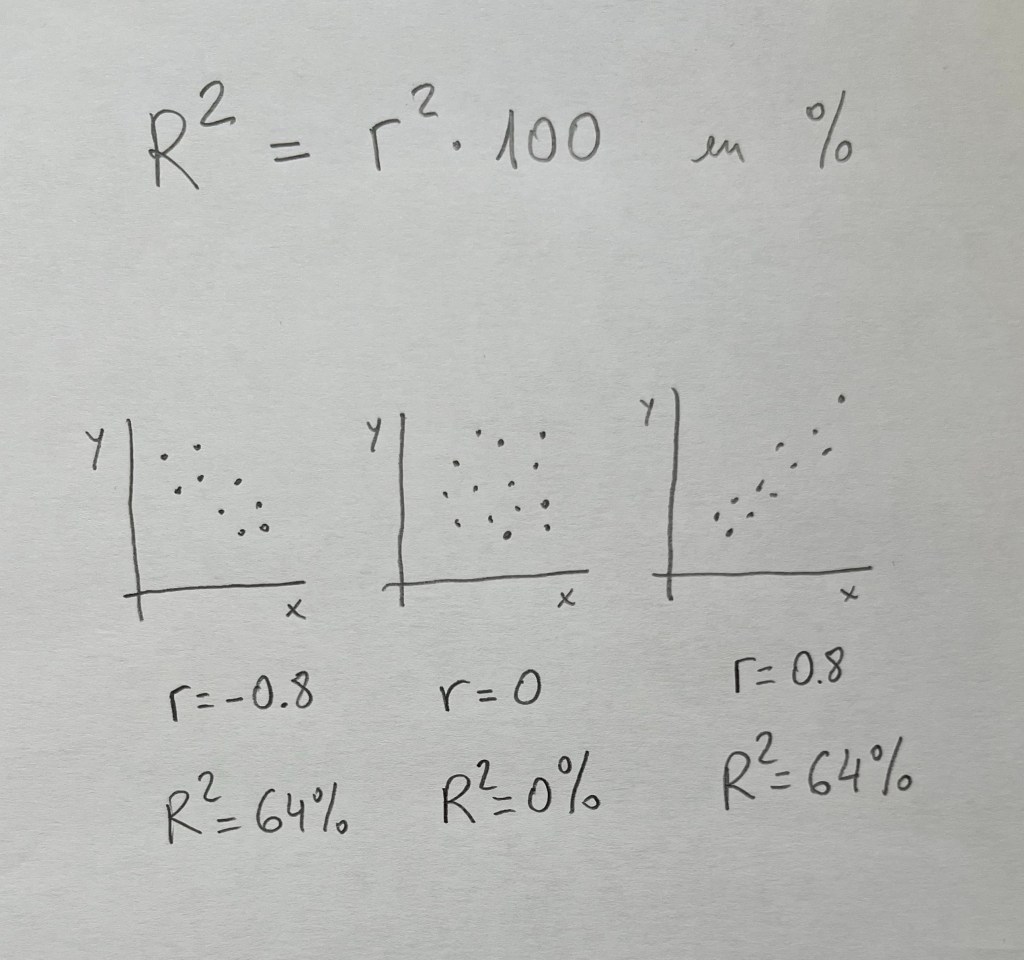 R² = r² · 100 en %
y y y
x x x
r = -0.8 r = 0 r = 0.8
R² = 64% R² = 0% R² = 64%